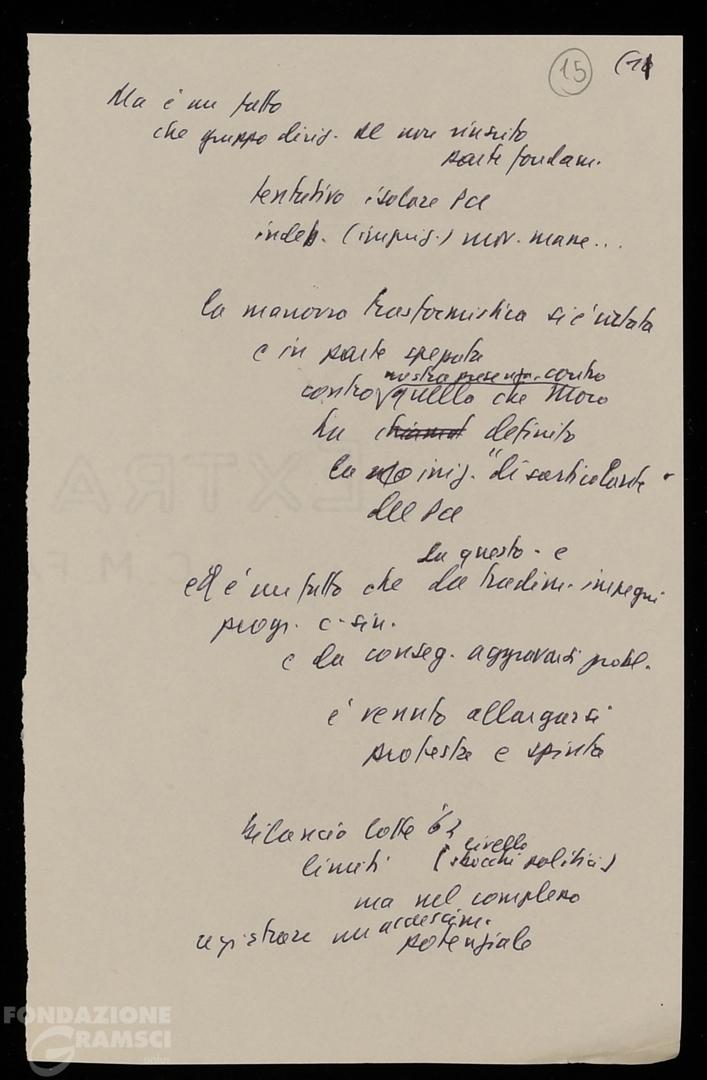 15
Ma è un fatto
che gruppo dirig. non riuscito
parte fondam.
tentativo isolare Pci
indeb. (imprig.) mov. mane...
la manovra trasformistica si è urtata
e in parte spezzata
nostra presenza. contro
contro quello che Moro
ha definito
la inig. "disarticolante"
del Pci
da questo - e
ed è un fatto che da tradim. impegni
progr. c-sin.
e da conseg. aggravarsi probl.
è venuto allargarsi
protesta e spinta
Bilancio lotte 63
livello
limiti (sbocchi politici)
ma nel complesso
accrescim.
registrare un potenziale
EXTRA
FONDAZIONE
GRAMSCI
onlus